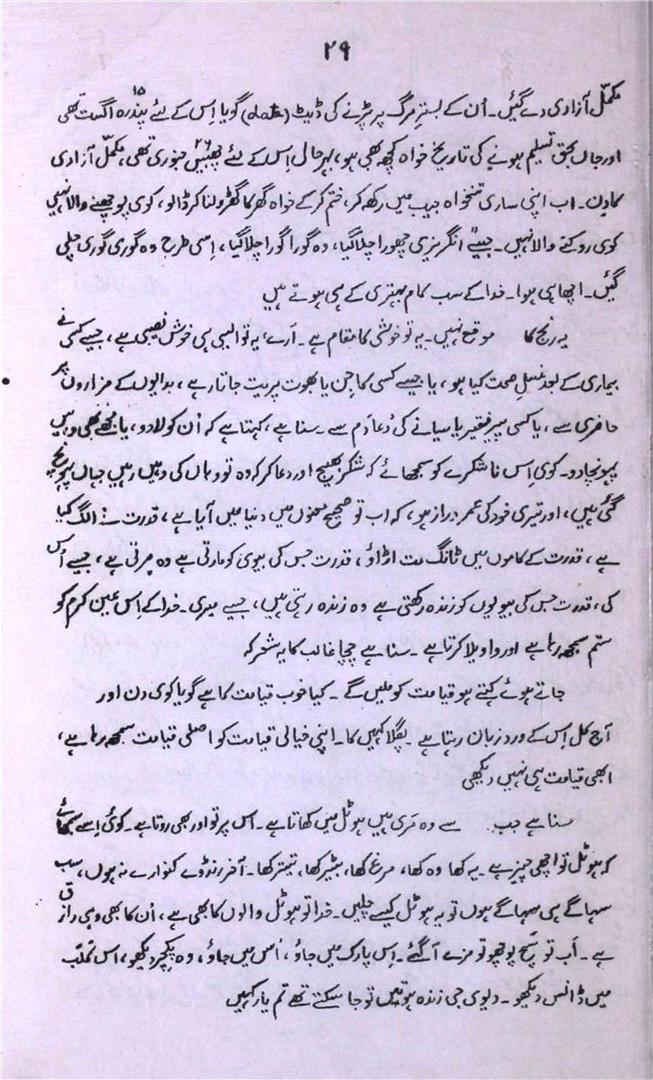 ۲۹
مکمّل آزادی دے گئیں۔ اُن کے بسترِ مرگ پر پڑنے کی ڈیٹ (date) گویا اِس کے لئے ۱۵ پندرہ اگست تھی
اور جاں بحق تسلیم ہونے کی تاریخ خواہ کچھ بھی ہو، بہرحال اِس کے لئے ۲۶ چھبیس جنوری تھی، مکمّل آزادی
کا دِن۔ اب اپنی ساری تنخواہ جیب میں رکھ کر، ختم کر کے خواہ گھر کا گھر ولنا کر ڈالو، کوی پوچھنے والا نہیں
کوی روکنے والا نہیں۔ جیسے انگریزی چھورا چلا گیا، وہ گورا گورا چلا گیا، اِسی طرح وہ گوری گوری چلی
گئیں۔ اچھا ہی ہوا۔ خدا کے سب کام بہتری کے ہی ہوتے ہیں
یہ رنج کا موقع نہیں۔ یہ تو خوشی کا مقام ہے۔ ارے یہ تو ایسی ہی خوش نصیبی ہے، جیسے کسی نے
بیماری کے بعد غسلِ صحت کیا ہو، یا جیسے کسی کا جِن یا بھوت پریت جاتا رہے، بدایوں کے مزاروں پر
حاضری سے، یا کسی پیر فقیر یا سیانے کی دُعا دَم سے۔ سنا ہے، کہتا ہے کہ اُن کو لا دو، یا مجھے بھی وہیں
پہونچا دو۔ کوی اس ناشکرے کو سمجھائے کہ شکر بھیج اور دعا کر کہ وہ تو وہاں کی وہیں رہیں جہاں پہونچ
گئی ہیں، اور تیری خود کی عمر دراز ہو، کہ اب تو صحیح معنوں میں دنیا میں آیا ہے، قدرت نے الگ کیا
ہے، قدرت کے کاموں میں ٹانگ مت اڑاؤ، قدرت جس کی بیوی کو مارتی ہے وہ مرتی ہے، جیسے اُس
کی، قدرت جس کی بیویوں کو زندہ رکھتی ہے وہ زندہ رہتی ہیں، جیسے میری۔ خدا کے اِس عین کرم کو
ستم سمجھ رہا ہے اور واویلا کرتا ہے۔ سنا ہے چچا غالب کا یہ شعر کہ
جاتے ہوئے کہتے ہو قیامت کو ملیں گے۔ کیا خوب قیامت کا ہے گویا کوی دن اور
آج کل اِس کے وردِ زبان رہتا ہے۔ پگلا کہیں کا۔ اپنی خیالی قیامت کو اصلی قیامت سمجھ رہا ہے،
ابھی قیامت ہی نہیں دیکھی
سنا ہے جب سے وہ مَری ہیں ہوٹل میں کھاتا ہے۔ اس پر تو اور بھی روتا ہے۔ کوئی اِسے سمجھائے
کہ ہوٹل تو اچھی چیز ہے۔ یہ کھا وہ کھا، مرغ کھا، بٹیر کھا، تیتر کھا۔ آخر رنڈوے کنوارے نہ ہوں، سب
سہاگے ہی سہاگے ہوں تو یہ ہوٹل کیسے چلیں۔ خدا تو ہوٹل والوں کا بھی ہے، اُن کا بھی وہی رازق
ہے۔ اَب تو سچ پوچھو تو مزے آ گئے۔ اِس پارک میں جاؤ، اُس میں جاؤ، وہ پکچر دیکھو، اس کلب
میں ڈانس دیکھو۔ دیوی جی زندہ ہوتیں تو جا سکتے تھے تم یار کہیں